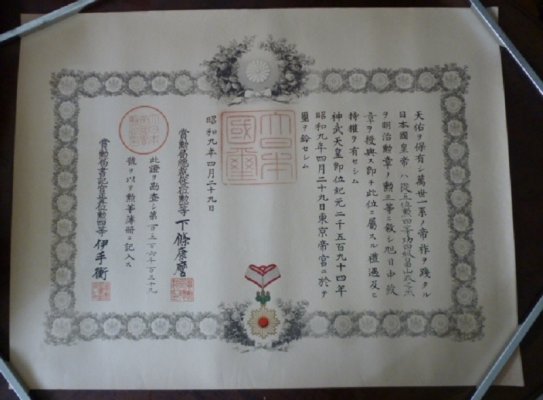 天佑ヲ保有シ萬世一系ノ帝祚ヲ踐タル
日本國皇帝ハ從五位勲四等功四級
ヲ明治勲章ノ勲三等ニ敍シ旭日中綬
章ヲ授與ス即チ此位ニ屬スル禮遇及ヒ
特權ヲ有セシム
神武天皇即位紀元二千五百九十四年
昭和九年四月二十九日東京帝宮ニ於テ
璽ヲ鈐セシム
大日本國璽
昭和九年四月二十九日
賞勲局總裁 下條康麿
此證ヲ勘査シ第
號ヲ以テ勲等簿冊ニ記入ス
賞勲局書記官 勲四等 伊手衛